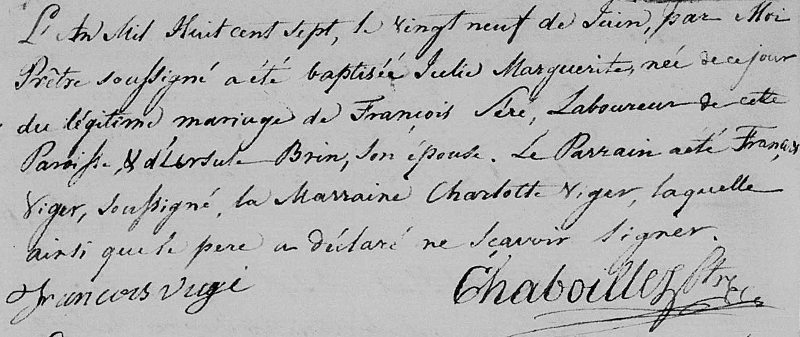 L'An Mil Huit cent sept, le vingt neuf de Juin, par Moi
Prêtre soussigné a été baptisée Julie Marguerite, née de ce jour
du légitime mariage de François Séré, Laboureur de cette
Paroisse, & d'Ursule Brin, son épouse. Le Parrain a été François
Viger, soussigné, la Marraine Charlotte Viger, laquelle
ainsi que le pere a déclaré ne sçavoir signer.
francois vigé Chaboillez Ptre